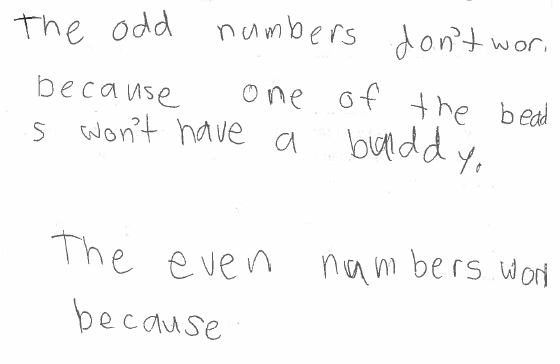 The odd numbers don't wor
because one of the bead
s won't have a buddy.
The even numbers wor
because